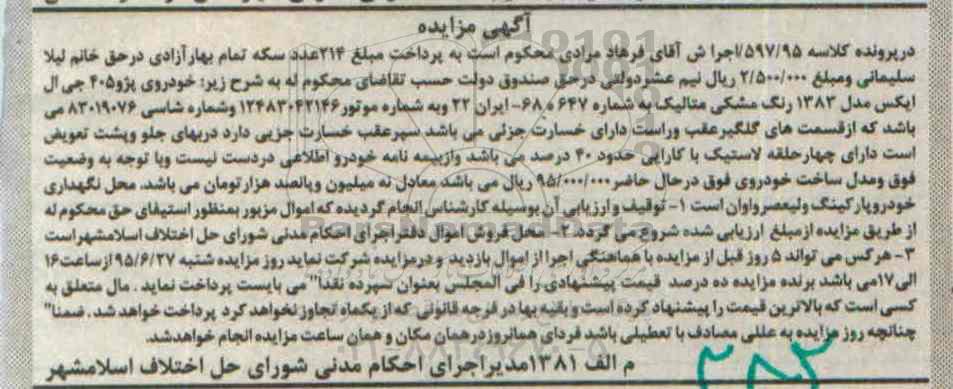 آگهی مزایده
درپرونده کلاسه ۵۹۷/۹۵/اجرا ش آقای فرهاد مرادی محکوم است به پرداخت مبلغ ۲۱۴عدد سکه تمام بهارآزادی درحق خانم لیلا
سلیمانی ومبلغ ۲/۵۰۰/۰۰۰ ریال نیم عشردولتی درحق صندوق دولت حسب تقاضای محکوم له به شرح زیر: خودروی پژو۴۰۵ جی ال
ایکس مدل ۱۳۸۳ رنگ مشکی متالیک به شماره ۶۴۷ ه ۶۸- ایران ۲۲ وبه شماره موتور۱۲۴۸۳۰۴۲۱۴۶ وشماره شاسی ۸۳۰۱۹۰۷۶ می
باشد که ازقسمت های گلگیرعقب وراست دارای خسارت جزئی می باشد سپرعقب خسارت جزیی دارد دربهای جلو وپشت تعویض
است دارای چهارحلقه لاستیک با کارایی حدود ۴۰ درصد می باشد وازبیمه نامه خودرو اطلاعی دردست نیست وبا توجه به وضعیت
فوق ومدل ساخت خودروی فوق درحال حاضر ۹۵/۰۰۰/۰۰۰ ریال می باشد معادل نه میلیون وپانصد هزارتومان می باشد. محل نگهداری
خودروپارکینگ ولیعصرواوان است ۱- توقیف وارزیابی آن بوسیله کارشناس انجام گردیده که اموال مزبور بمنظور استیفای حق محکوم له
از طریق مزایده ازمبلغ ارزیابی شده شروع می گردد ۲- محل فروش اموال دفتراجرای احکام مدنی شورای حل اختلاف اسلامشهراست
۳- هرکس می تواند ۵ روز قبل از مزایده با هماهنگی اجرا از اموال بازدید و درمزایده شرکت نماید روز مزایده شنبه ۹۵/۶/۲۷ ازساعت۱۶
الی۱۷می باشد برنده مزایده ده درصد قیمت پیشنهادی را فی المجلس بعنوان سپرده نقدا" می بایست پرداخت نماید . مال متعلق به
کسی است که بالاترین قیمت را پیشنهاد کرده است وبقیه بها در فرجه قانونی که از یکماه تجاوز نخواهد کرد پرداخت خواهد شد . ضمنا"
چنانچه روز مزایده به عللی مصادف با تعطیلی باشد فردای همانروزدرهمان مکان و همان ساعت مزایده انجام خواهدشد.
م الف ۱۳۸۱مدیراجرای احکام مدنی شورای حل اختلاف اسلامشهر
۲۸۲